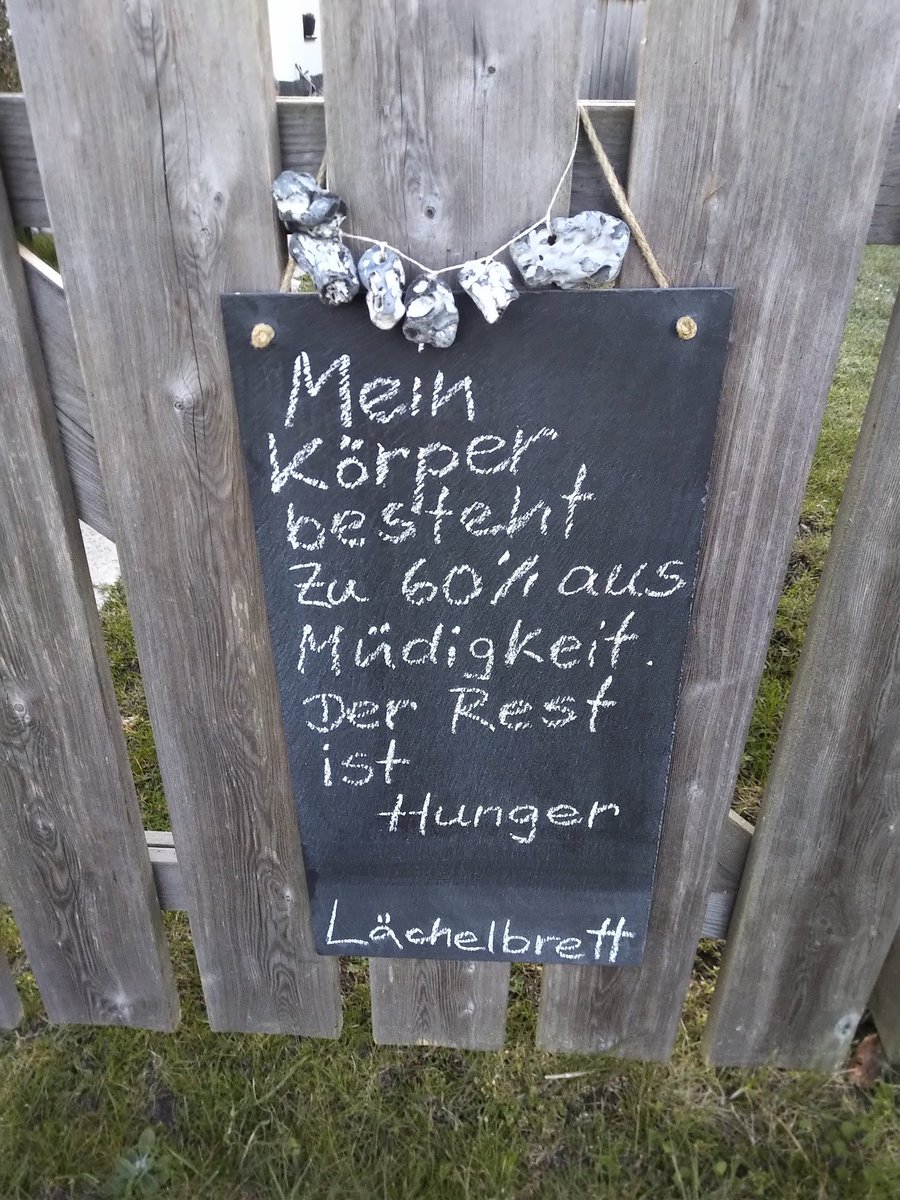 Mein
Körper
besteht
Zu 60% aus
Müdigkeit.
Der Rest
ist
Hunger
Lächelbrett